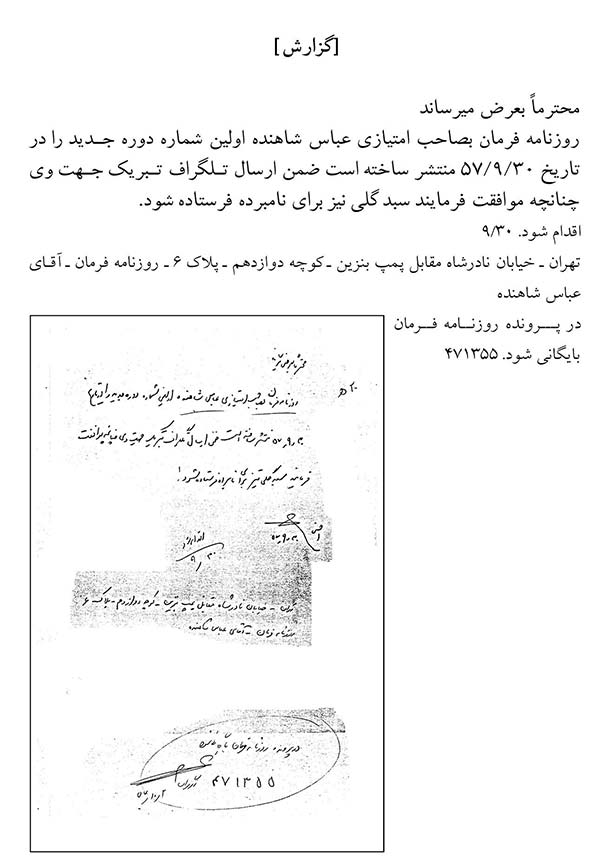 [گزارش]
محترماً بعرض میرساند
روزنامه فرمان بصاحب امتیازی عباس شاهنده اولین شماره دوره جدید را در
تاریخ ۵۷/۹/۳۰ منتشر ساخته است ضمن ارسال تلگراف تبریک جهت وی
چنانچه موافقت فرمایند سبد گلی نیز برای نامبرده فرستاده شود.
اقدام شود. ۹/۳۰
تهران ـ خیابان نادرشاه مقابل پمپ بنزین ـ کوچه دوازدهم ـ پلاک ۶ ـ روزنامه فرمان ـ آقای
عباس شاهنده
در پرونده روزنامه فرمان
بایگانی شود. ۴۷۱۳۵۵
محترماً بعرض میرساند
روزنامه فرمان بصاحب امتیازی عباس شاهنده اولین شماره دوره جدید را در تاریخ
۵۷/۹/۳۰ منتشر ساخته است ضمن ارسال تلگراف تبریک جهت وی چنانچه موافقت
فرمایند سبد گلی نیز برای نامبرده فرستاده شود.
اقدام شود
۹/۳۰
تهران - خیابان نادرشاه مقابل پمپ بنزین - کوچه دوازدهم - پلاک ۶
روزنامه فرمان - آقای عباس شاهنده
در پرونده روزنامه فرمان بایگانی شود
۴۷۱۳۵۵